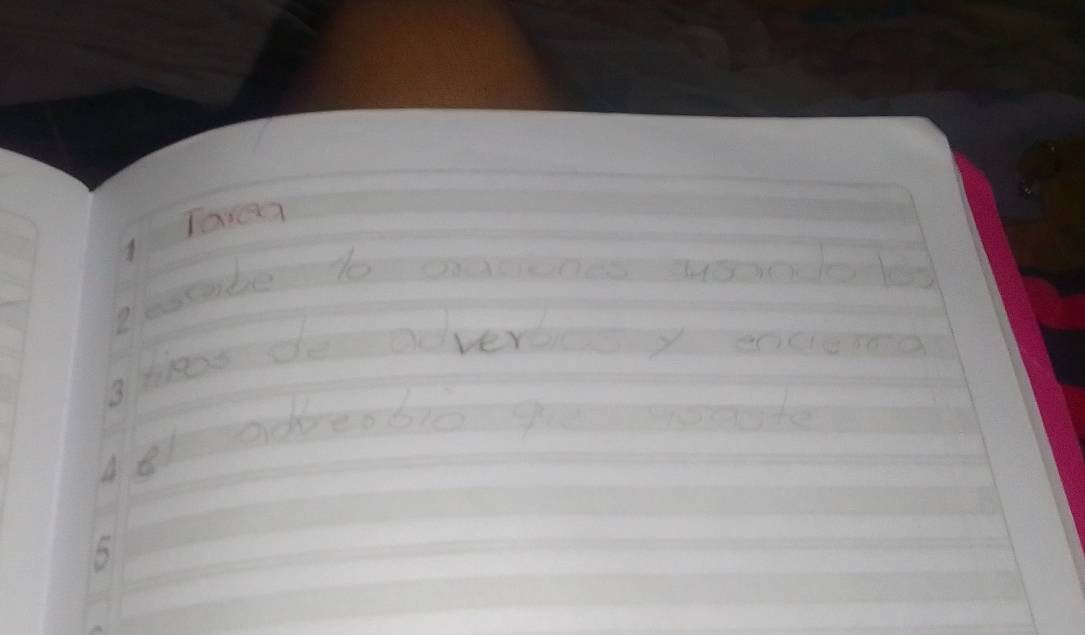 Tarea
1
escribe 10 oraciones usando los
2
tipos de adverbios y encierra
3
el adverbio que usaste
4
5